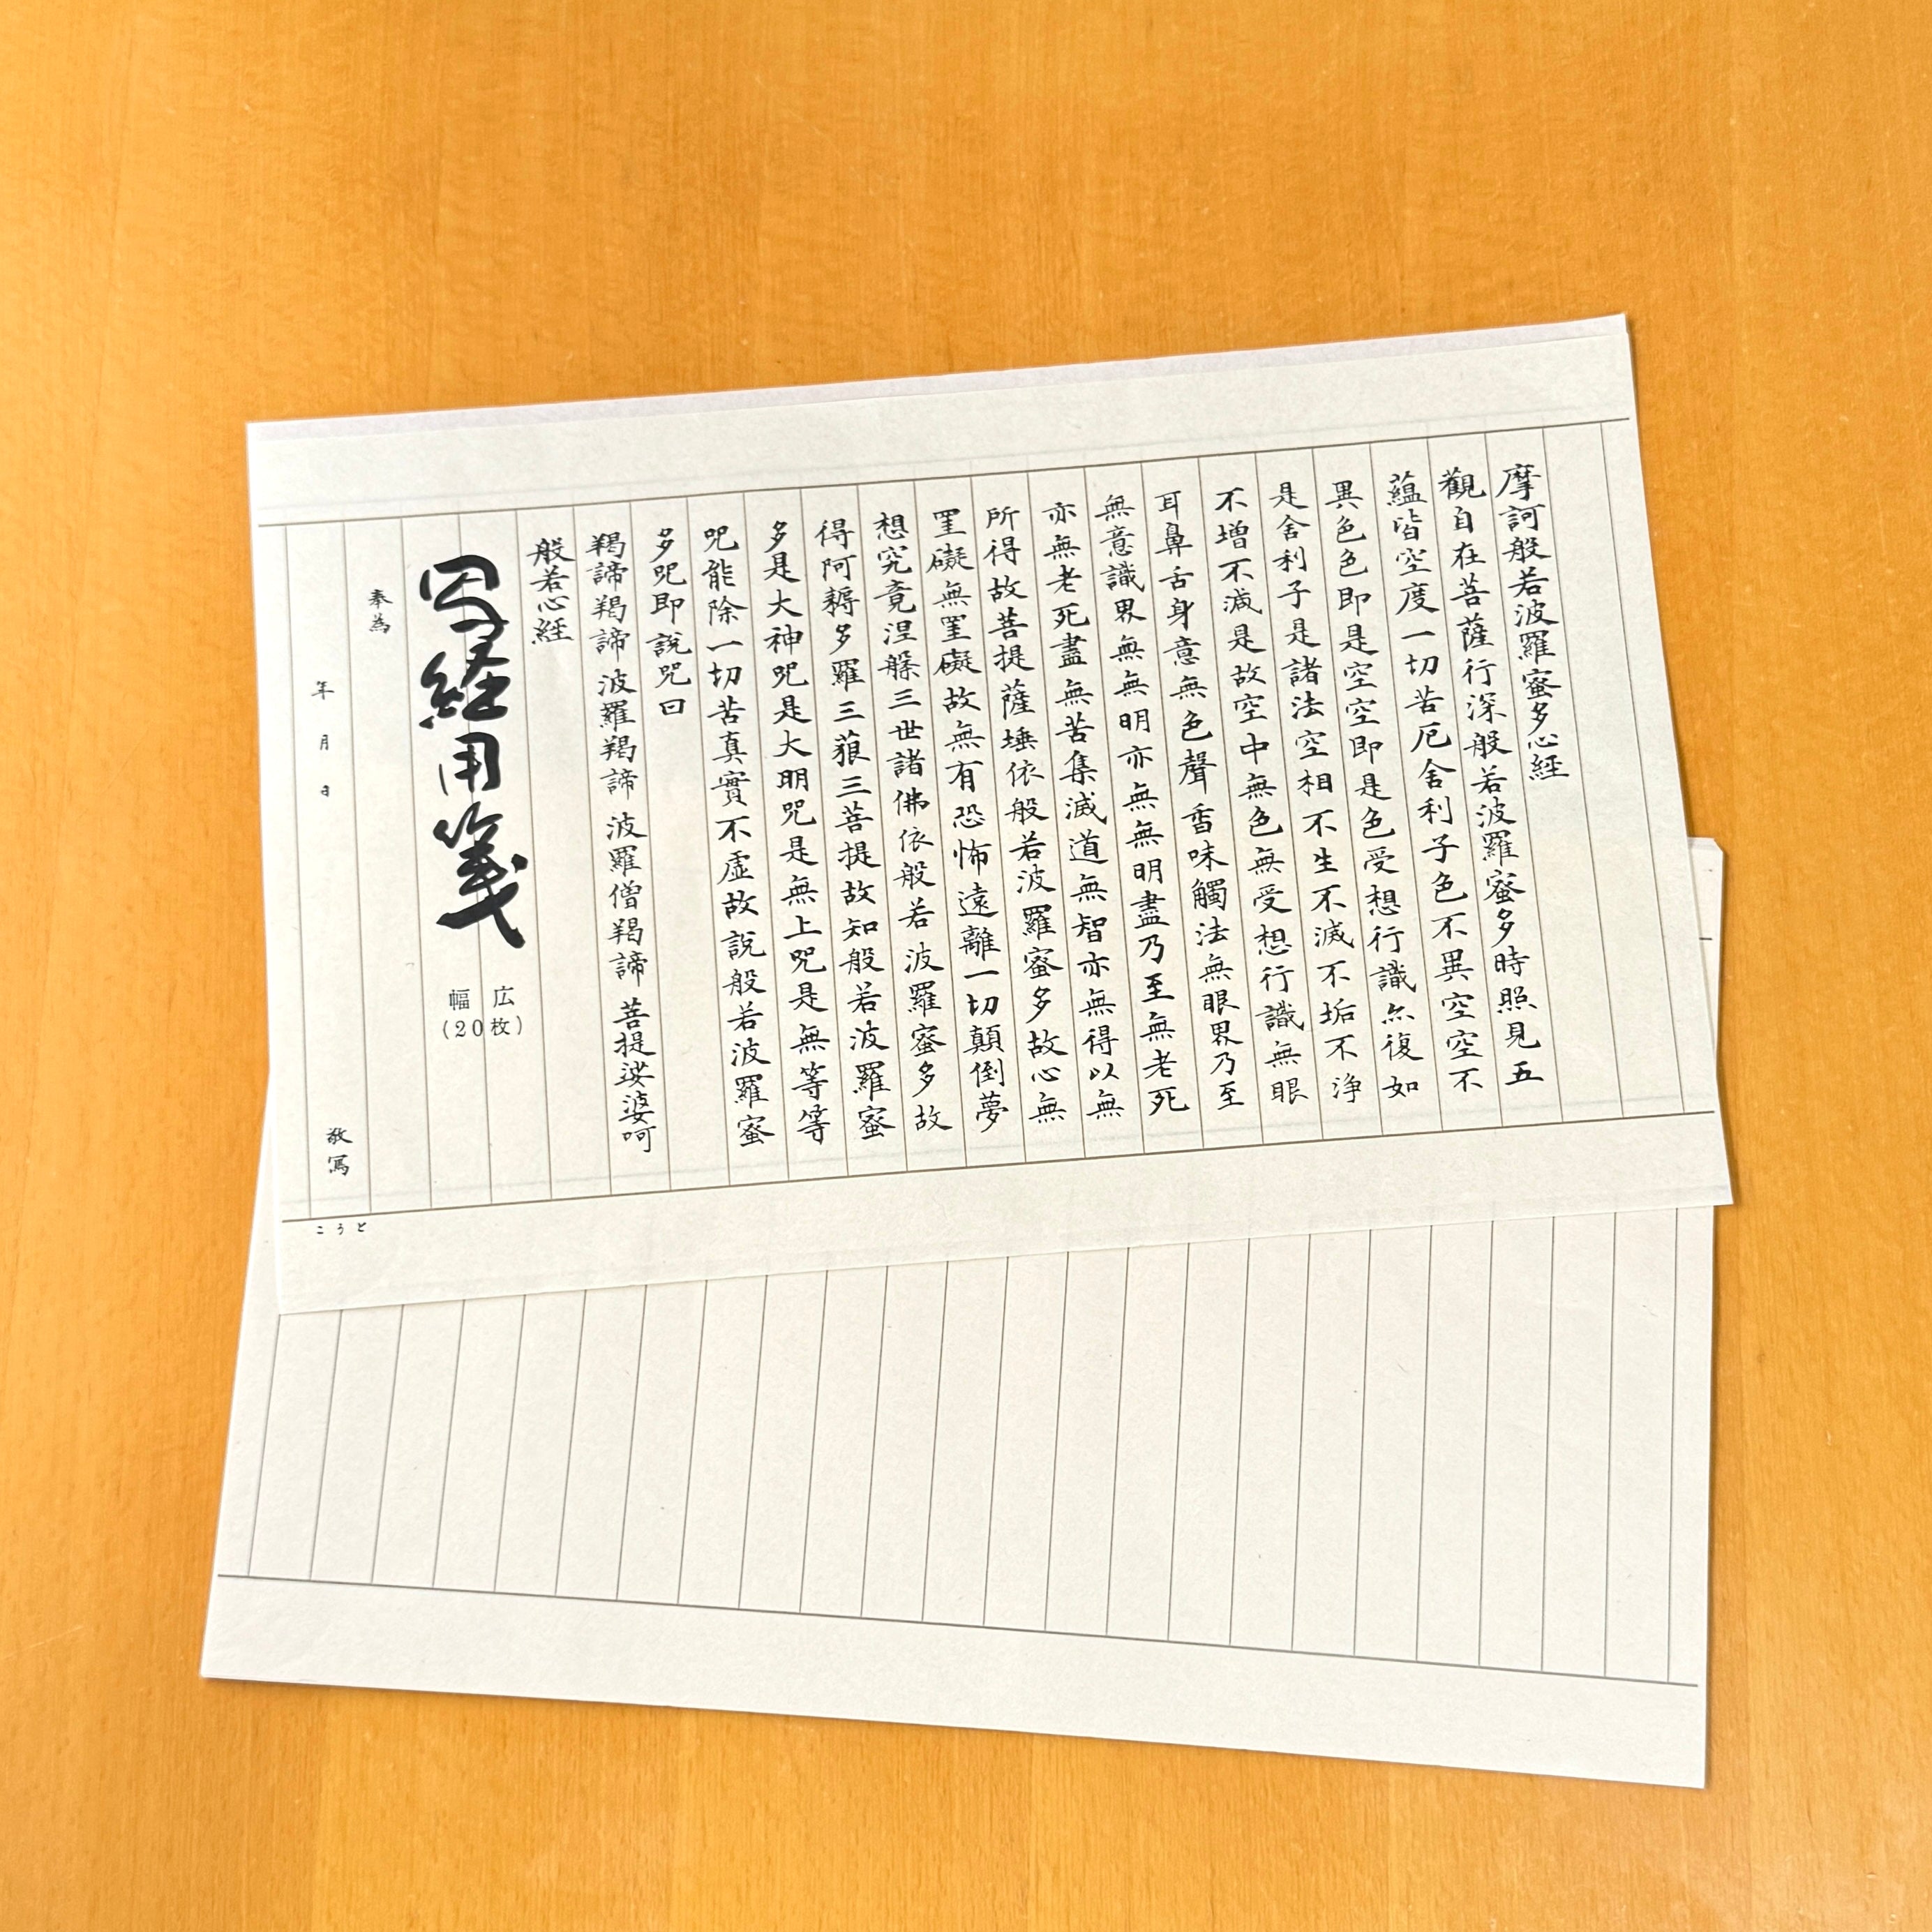 摩訶般若波羅蜜多心経
觀自在菩薩行深般若波羅蜜多時照見五
蘊皆空度一切苦厄舍利子色不異空空不
異色色即是空空即是色受想行識亦復如
是舍利子是諸法空相不生不滅不垢不浄
不增不滅是故空中無色無受想行識無眼
耳鼻舌身意無色聲香味觸法無眼界乃至
無意識界無無明亦無無明盡乃至無老死
亦無老死盡無苦集滅道無智亦無得以無
所得故菩提薩埵依般若波羅蜜多故心無
罣礙無罣礙故無有恐怖遠離一切顛倒夢
想究竟涅槃三世諸佛依般若波羅蜜多故
得阿耨多羅三藐三菩提故知般若波羅蜜
多是大神呪是大明呪是無上呪是無等等
呪能除一切苦真實不虛故說般若波羅蜜
多呪即說呪曰
羯諦羯諦 波羅羯諦 波羅僧羯諦 菩提娑婆呵
般若心経
写経用箋
広幅
(20枚)
奉為
年 月 日
敬写
こうど